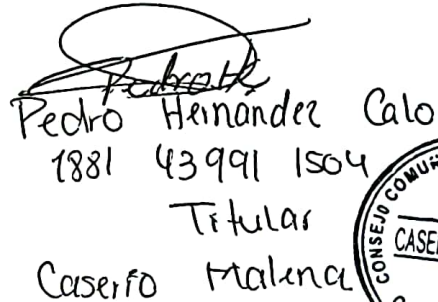 PedroH
Pedro Hernandez Calo
1881 43991 1504
Titular
Caserío Malena
CONSEJO COMUN
CASER